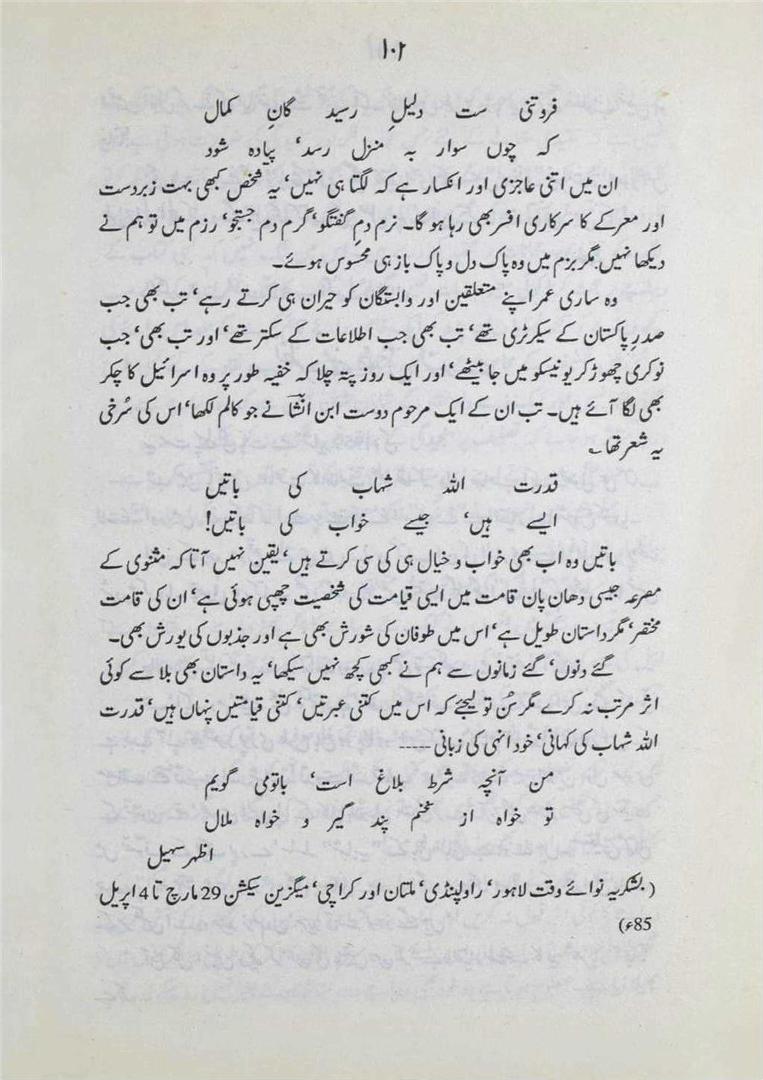 ۱۰۲
فروتنی ست دلیلِ رسید گانِ کمال
کہ چوں سوار بہ منزل رسد، پیادہ شود
ان میں اتنی عاجزی اور انکسار ہے کہ لگتا ہی نہیں، یہ شخص کبھی بہت زبردست
اور معرکے کا سرکاری افسر بھی رہا ہو گا۔ نرم دمِ گفتگو، گرم دم جستجو، رزم میں تو ہم نے
دیکھا نہیں مگر بزم میں وہ پاک دل و پاک باز ہی محسوس ہوئے۔
وہ ساری عمر اپنے متعلقین اور وابستگان کو حیران ہی کرتے رہے، تب بھی جب
صدرِ پاکستان کے سیکرٹری تھے، تب بھی جب اطلاعات کے سکتر تھے، اور تب بھی، جب
نوکری چھوڑ کر یونیسکو میں جا بیٹھے، اور ایک روز پتہ چلا کہ خفیہ طور پر وہ اسرائیل کا چکر
بھی لگا آئے ہیں۔ تب ان کے ایک مرحوم دوست ابن انشاؔ نے جو کالم لکھا، اس کی سُرخی
یہ شعر تھا ؎
قدرت اللہ شہاب کی باتیں
ایسے ہیں، جیسے خواب کی باتیں!
باتیں وہ اب بھی خواب و خیال ہی کی سی کرتے ہیں، یقین نہیں آتا کہ مثنوی کے
مصرعہ جیسی دھان پان قامت میں ایسی قیامت کی شخصیت چھپی ہوئی ہے، ان کی قامت
مختصر، مگر داستان طویل ہے، اس میں طوفان کی شورش بھی ہے اور جذبوں کی یورش بھی۔
گئے دنوں، گئے زمانوں سے ہم نے کبھی کچھ نہیں سیکھا، یہ داستان بھی بلا سے کوئی
اثر مرتب نہ کرے مگر سُن تو لیجئے کہ اس میں کتنی عبرتیں، کتنی قیامتیں پنہاں ہیں، قدرت
اللہ شہاب کی کہانی، خود انہی کی زبانی -----
من آنچہ شرط بلاغ است، باتومی گویم
تو خواہ از سخنم پند گیر و خواہ ملال
اظہر سہیل
(بشکریہ نوائے وقت لاہور، راولپنڈی، ملتان اور کراچی، میگزین سیکشن 29 مارچ تا 4 اپریل
85ء)